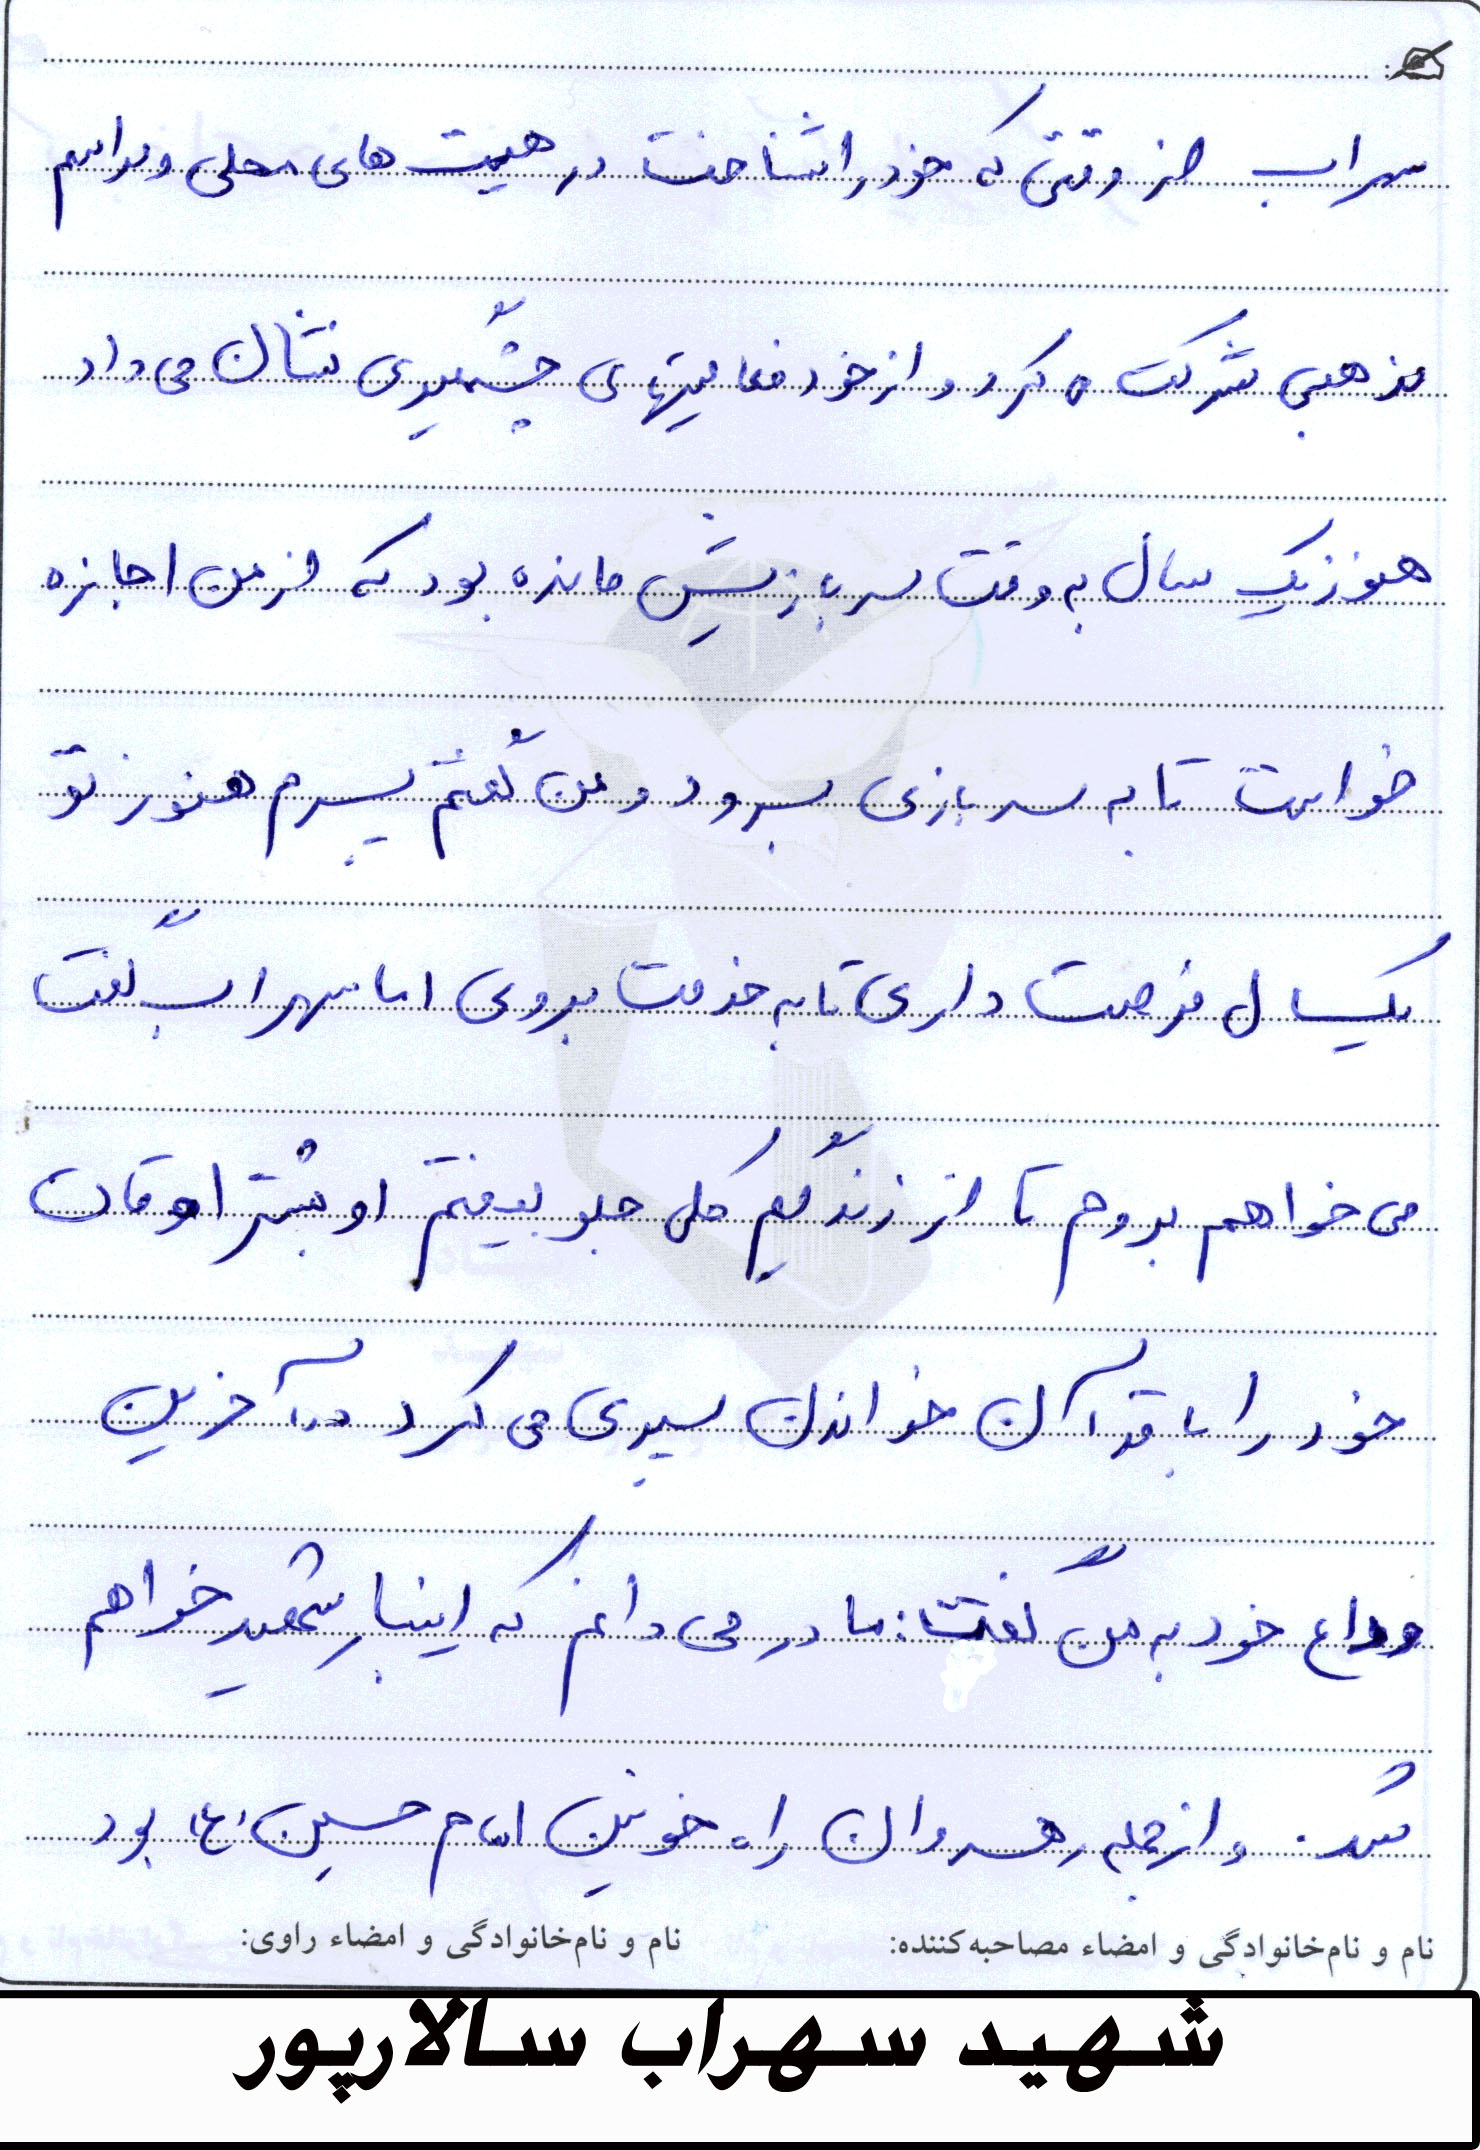 سهراب از وقتی که خود را شناخت در هیئت های محلی و مراسم
مذهبی شرکت می کرد و از خود فعالیتهای چشمگیری نشان می داد
هنوز یک سال به وقت سربازیش مانده بود که از من اجازه
خواست تا به سربازی برود و من گفتم پسرم هنوز تو
یکسال فرصت داری تا به خدمت بروی اما سهراب گفت
می خواهم بروم تا از زندگیم جلو بیفتم او بیشتر اوقات
خود را با قرآن خواندن سپری می کرد در آخرین
وداع خود به من گفت: مادر می دانم که اینبار شهید خواهم
شد. و از جمله رهروان راه خونین امام حسین (ع) بود
نام و نام‌خانوادگی و امضاء مصاحبه‌کننده: نام و نام‌خانوادگی و امضاء راوی:
شهید سهراب سالارپور